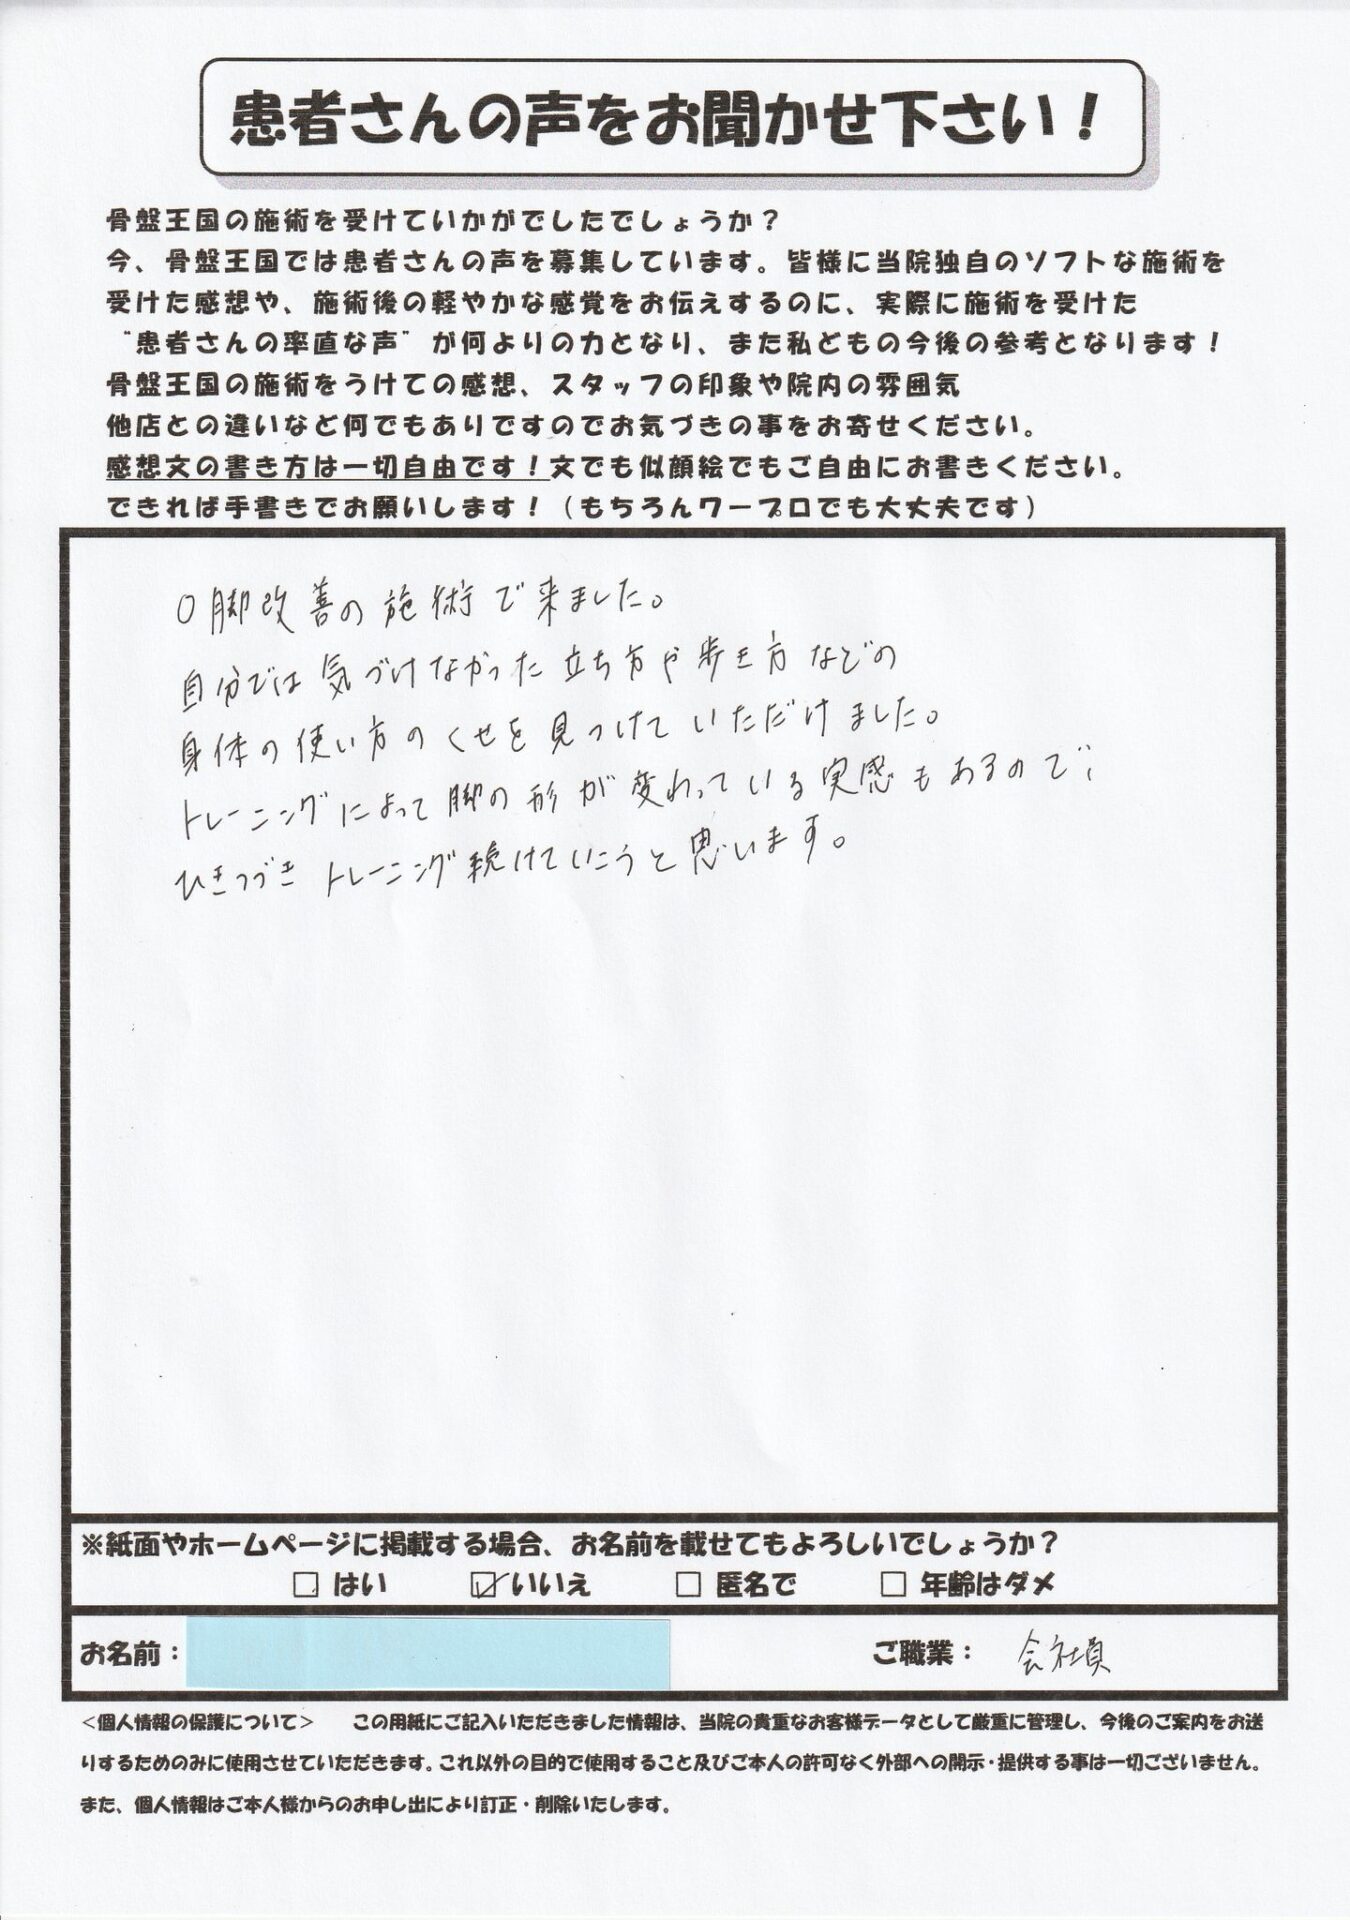 患者さんの声をお聞かせ下さい！
骨盤王国の施術を受けていかがでしたでしょうか？
今、骨盤王国では患者さんの声を募集しています。皆様に当院独自のソフトな施術を
受けた感想や、施術後の軽やかな感覚をお伝えするのに、実際に施術を受けた
“患者さんの率直な声”が何よりの力となり、また私どもの今後の参考となります！
骨盤王国の施術をうけての感想、スタッフの印象や院内の雰囲気
他店との違いなど何でもありですのでお気づきの事をお寄せください。
感想文の書き方は一切自由です！文でも似顔絵でもご自由にお書きください。
できれば手書きでお願いします！（もちろんワープロでも大丈夫です）
O脚改善の施術で来ました。
自分では気づけなかった立ち方や歩き方などの
身体の使い方のくせを見つけていただけました。
トレーニングによって脚の形が変わっている実感もあるので、
ひきつづきトレーニング続けていこうと思います。
※紙面やホームページに掲載する場合、お名前を載せてもよろしいでしょうか？
□ はい ☑ いいえ □ 匿名で □ 年齢はダメ
お名前： ご職業： 会社員
＜個人情報の保護について＞ この用紙にご記入いただきました情報は、当院の貴重なお客様データとして厳重に管理し、今後のご案内をお送
りするためのみに使用させていただきます。これ以外の目的で使用すること及びご本人の許可なく外部への開示・提供する事は一切ございません。
また、個人情報はご本人様からのお申し出により訂正・削除いたします。